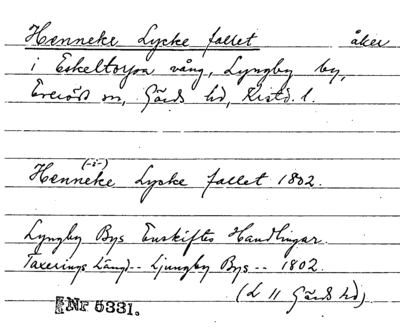 Henneke Lycke fallet åker
i Eskeltorpa vång, Lyngby by,
Everöds sn, Gärds hd, Kristd. l.
(-i-)
Henneke Lycke fallet 1802.
Lyngby Bys Enskiftes Handlingar.
Taxerings Längd -- Ljungby Bys -- 1802.
(L 11 Gärds hd)
Nr 5331.